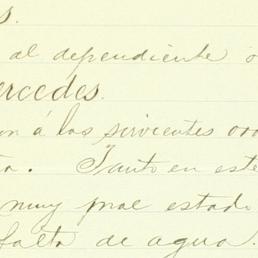 s.
al dependiente o
ercedes.
on á los sirvientes
ta. Tanto en este
muy mal estado
falta de agua.